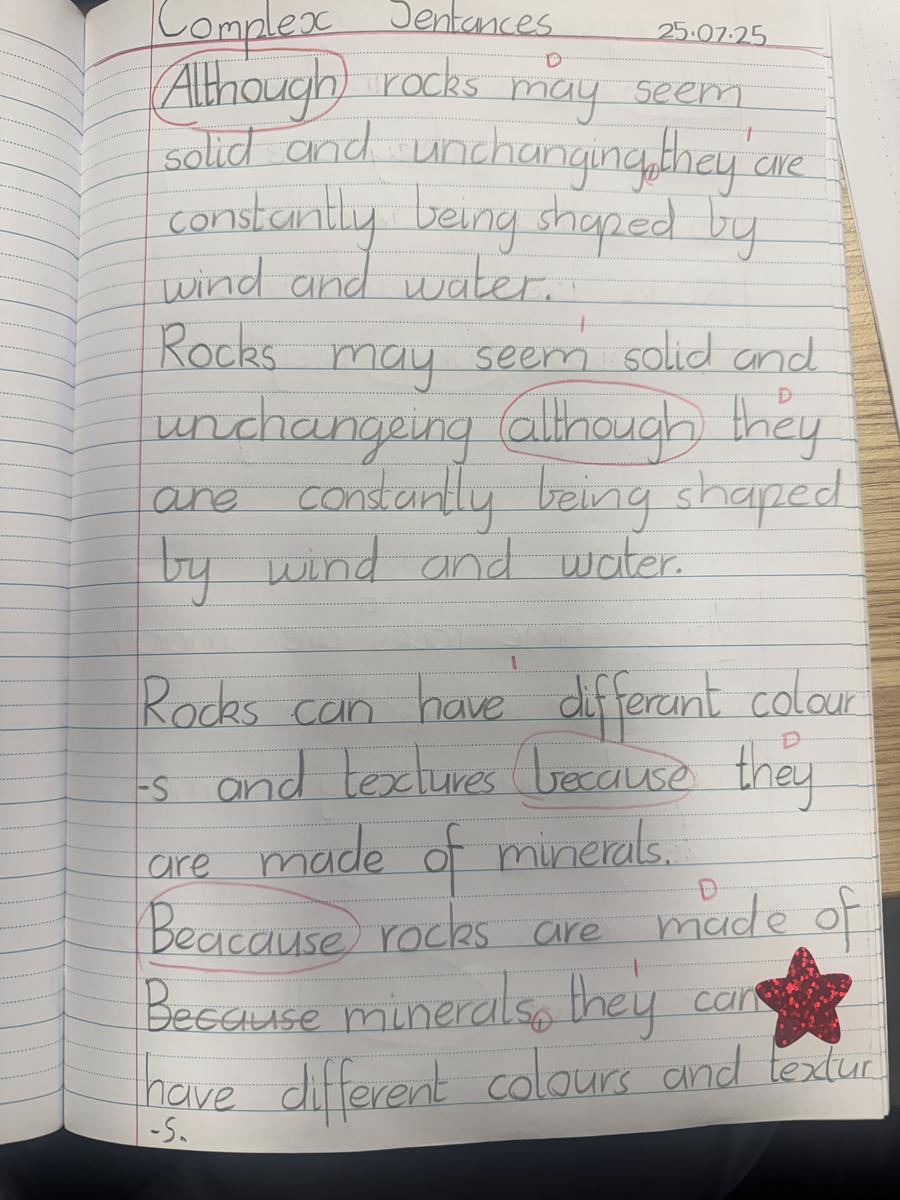 Complex Sentances 25.07.25
Although rocks may seem
solid and unchanging, they are
constantly being shaped by
wind and water.
Rocks may seem solid and
unchangeing although they
are constantly being shaped
by wind and water.
Rocks can have differant colour
-s and textures because they
are made of minerals.
Beacause rocks are made of
Because minerals, they can
have different colours and textur
-s.